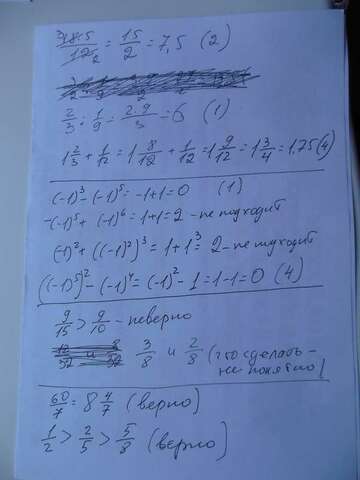 18·5/12 = 15/2 = 7,5 (2)
2/3 : 1/9 = 2·9/3 = 6 (1)
1 2/3 + 1/12 = 1 8/12 + 1/12 = 1 9/12 = 1 3/4 = 1,75 (4)
(-1)³ - (-1)⁵ = -1+1 = 0 (1)
-(-1)⁵ + (-1)⁶ = 1+1 = 2 - не подходит
(-1)² + ((-1)²)³ = 1+1³ = 2 - не подходит
((-1)⁵)² - (-1)⁴ = (-1)² - 1 = 1-1 = 0 (4)
9/15 > 9/10 - неверно
3/8 и 2/8 (что сделать - не понятно)
60/7 = 8 4/7 (верно)
1/2 > 2/5 > 5/8 (верно)